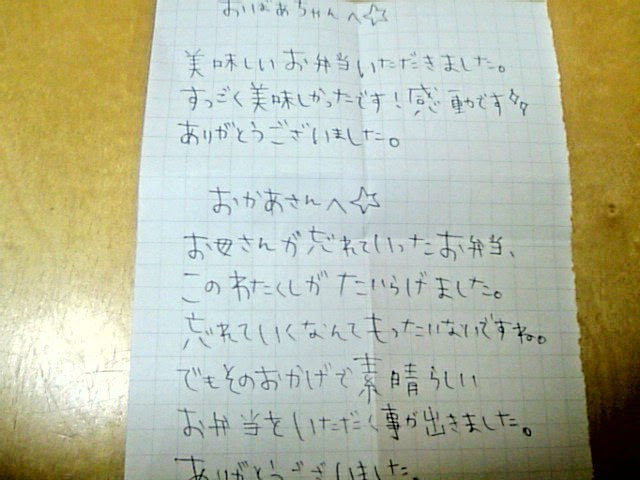 おばあちゃんへ☆
美味しいお弁当いただきました。
すっごく美味しかったです!感動です
ありがとうございました。
おかあさんへ☆
お母さんが忘れていったお弁当、
このわたくしがたいらげました。
忘れていくなんてもったいないですね。
でもそのおかげで素晴らしい
お弁当をいただく事が出きました。
ありがとうございました。